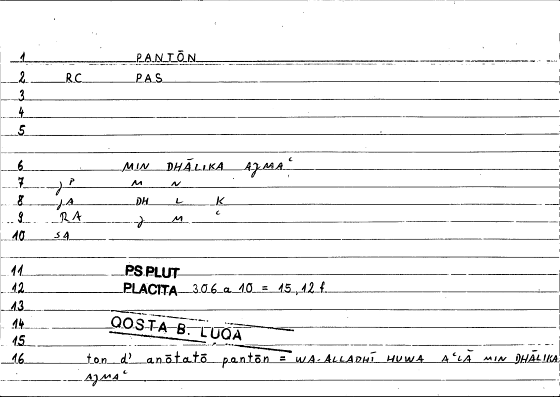 1 PANTŌN
2 RC PAS
3
4
5
6 MIN DHĀLIKA AJMAʿ
7 JP M N
8 JA DH L K
9 RA J M ʿ
10 SA
11 PS PLUT
12 PLACITA 306 a 10 = 15,12 f.
13
14 QOSTA B. LUQA
15
16 ton d' anōtatō pantōn = WA-ALLADHĪ HUWA AʿLĀ MIN DHĀLIKA
AJMAʿ